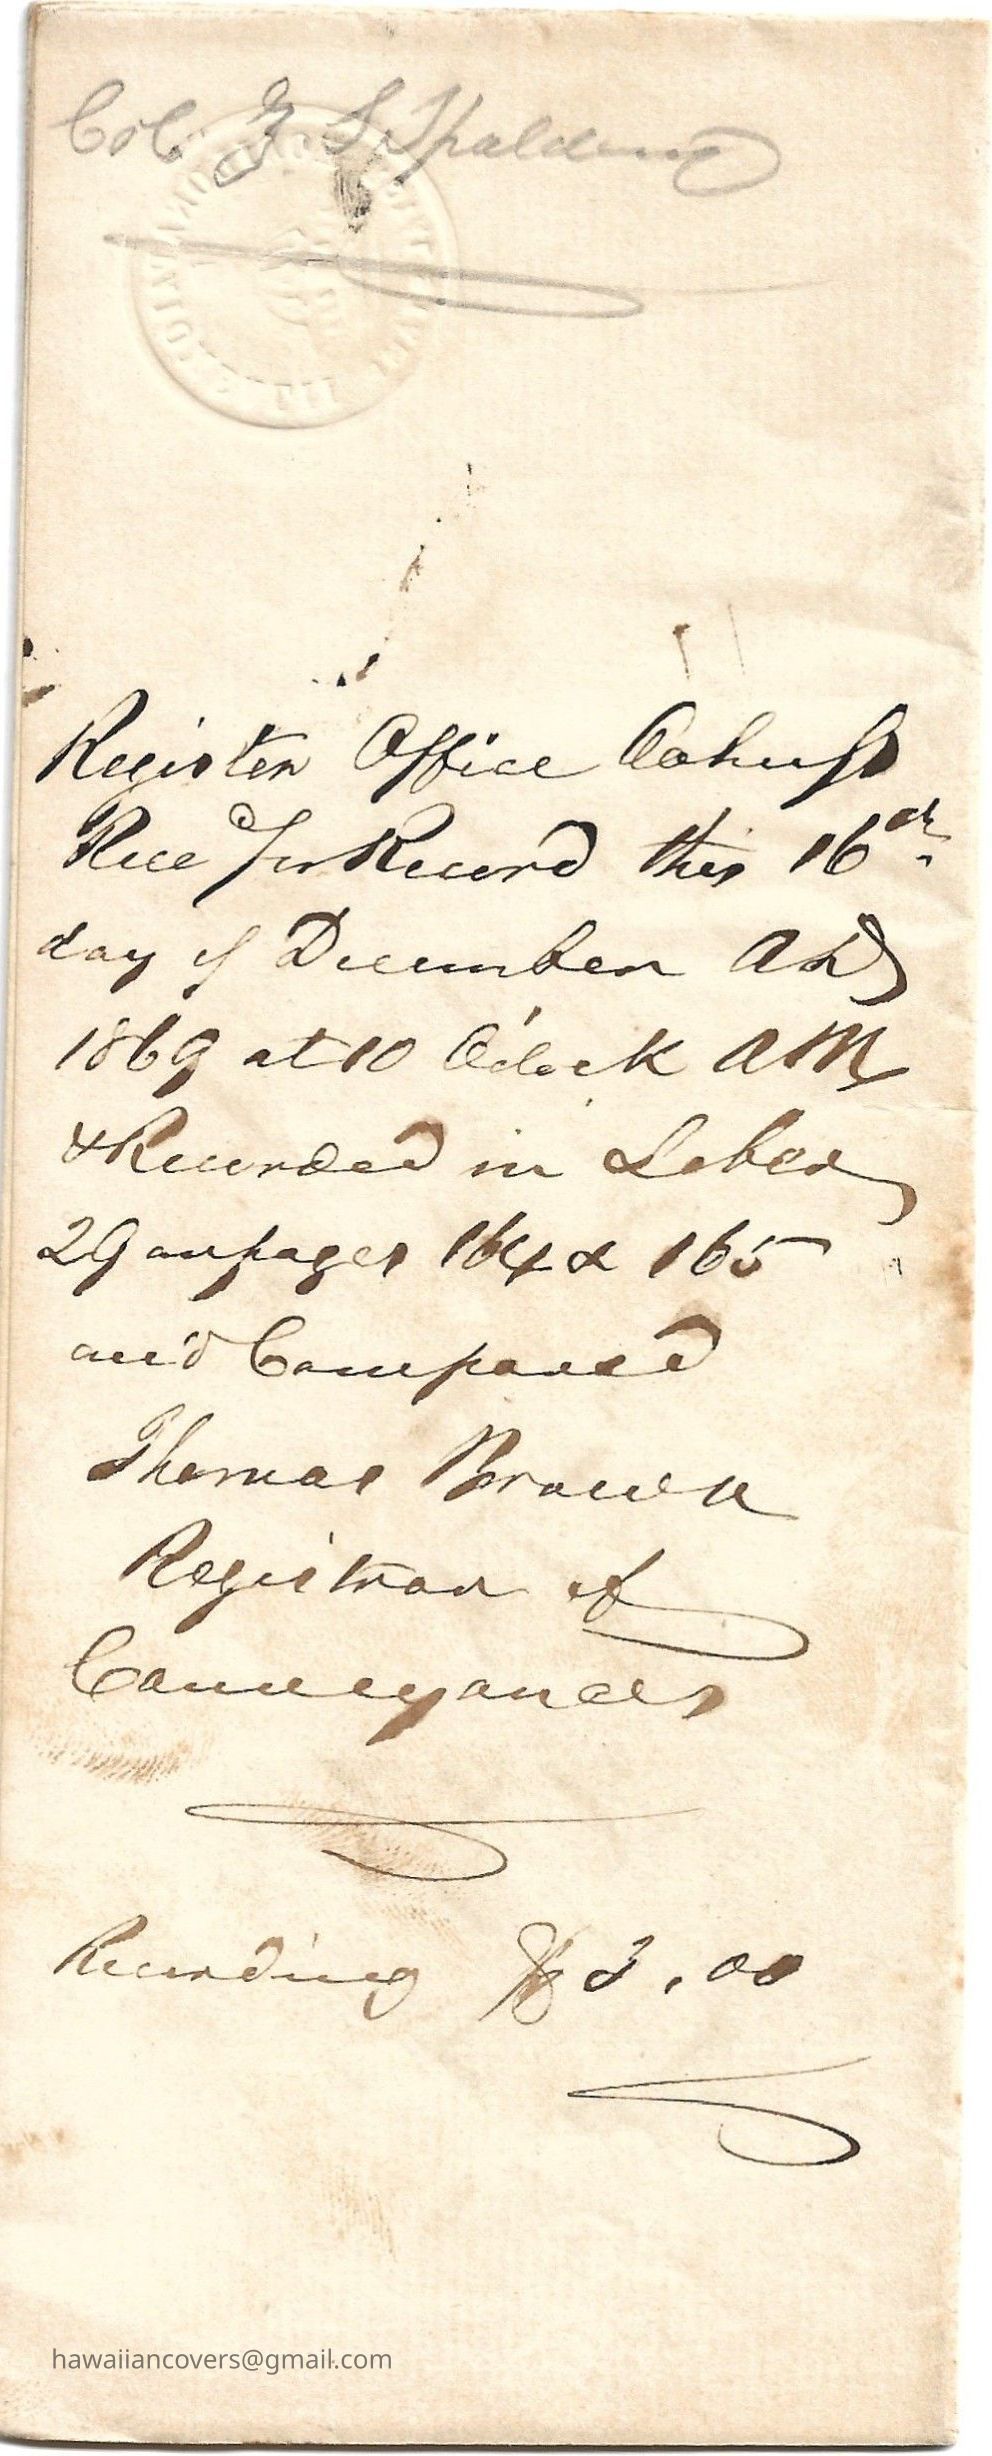 Col. Z. S. Spalding
Register Office Oahu ss
Recd for Record this 16th
day of December AD
1869 at 10 O'clock AM
& Recorded in Liber
29 on pages 164 & 165
and Compared
Thomas Brown
Registrar of
Conveyances
Recording $3.00
hawaiiancovers@gmail.com